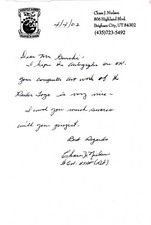 Chase J. Nielsen
808 Highland Blvd.
Brigham City, UT 84302
(435)723-5492
4/4/02
Dear Mr.
I hope the Autographs are OK.
Your computer art work of the
Raider Logo is very nice -
I wish you much success
with your project.
Best Regards
Chase J. Nielsen